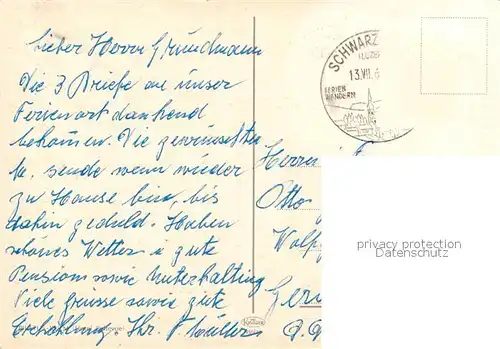 Lieber Herr Grundmann
Die 3 Briefe an unser
Ferienort dankend
bekommen. Die gewünschten
sende wenn wieder
zu Hause bin, bis
dahin geduld. Haben
schönes Wetter u gute
Pension sowie Unterhaltung
Viele grüsse sowie gute
Erholung. Ihr.
SCHWARZ
13.VII.6
FERIEN
WANDERN
Herrn
Otto
Wolfg
Gera
privacy protection
Datenschutz